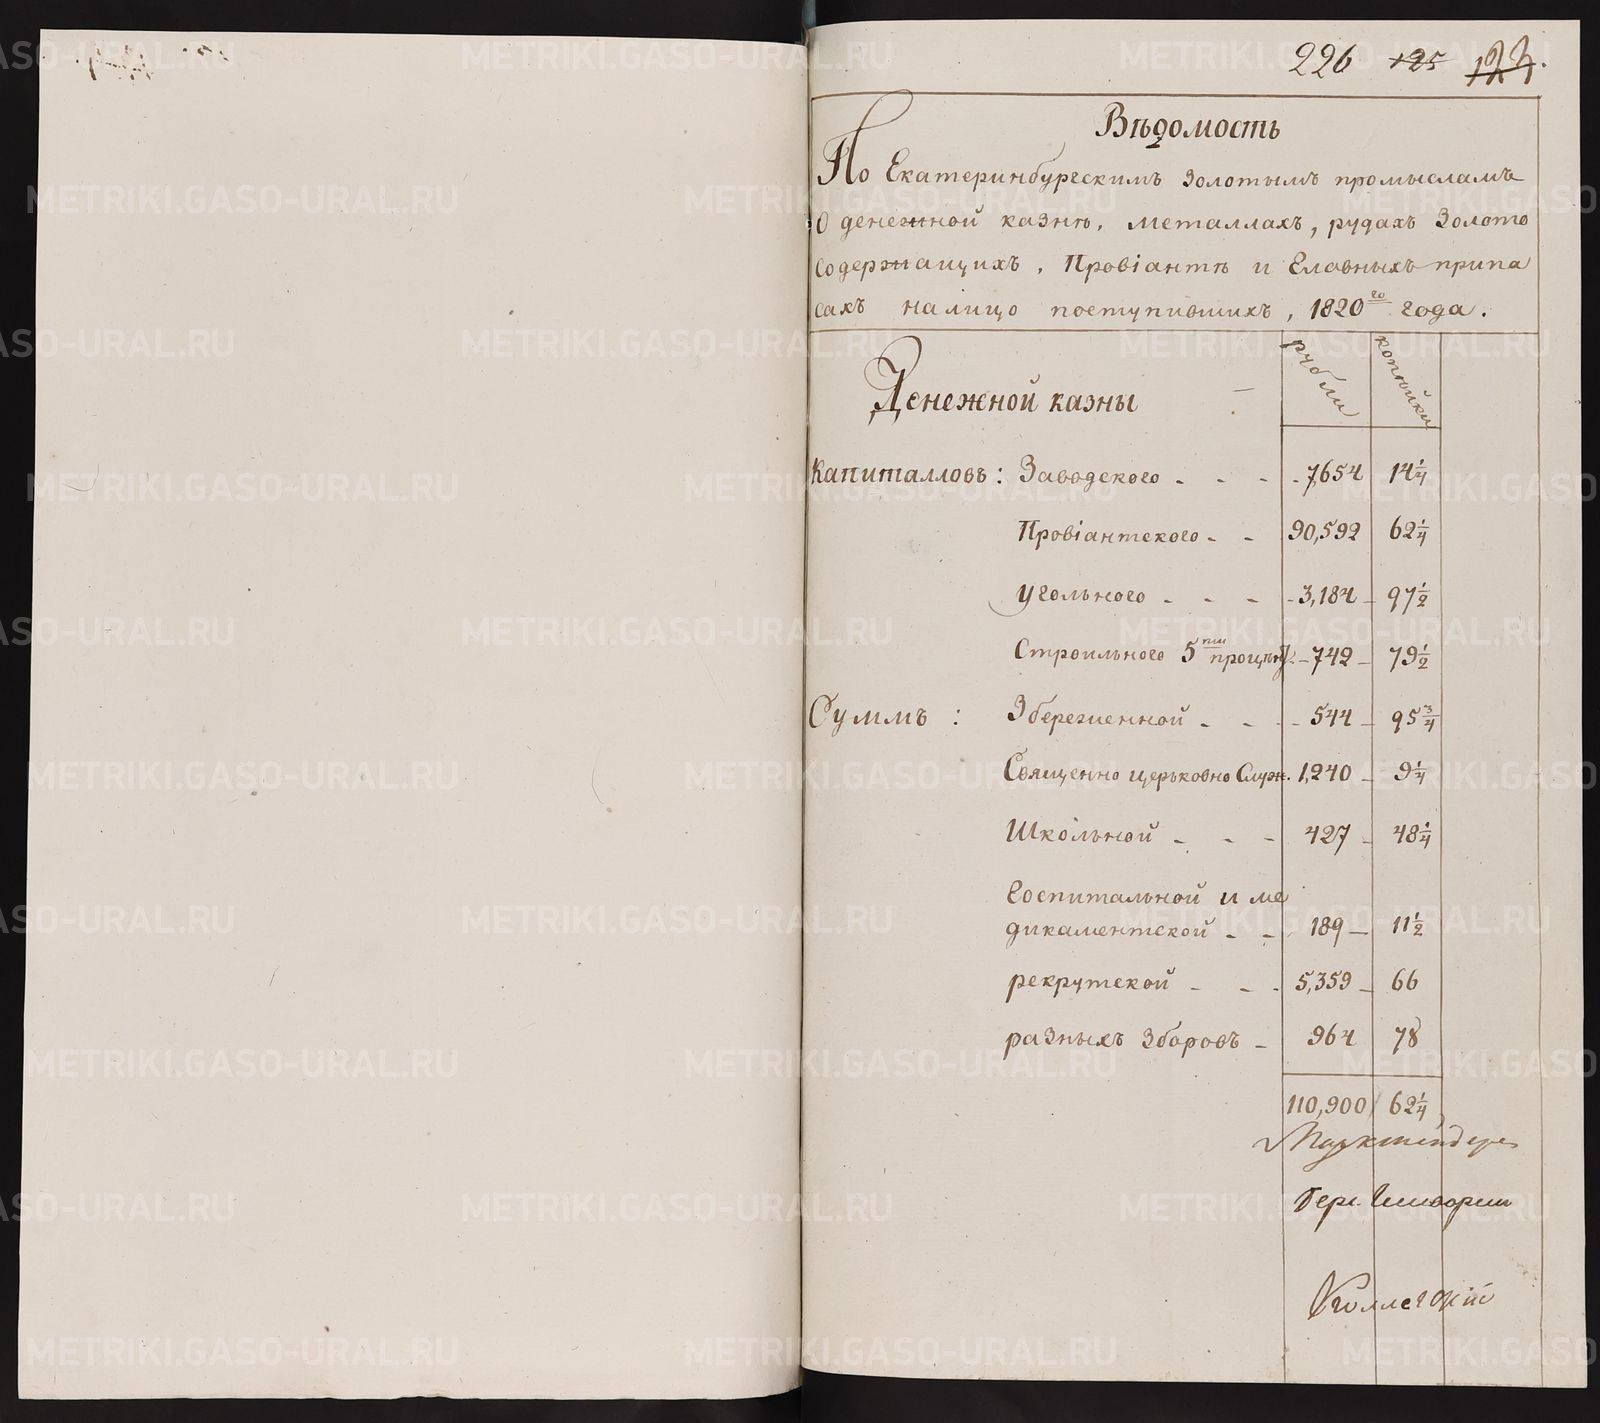 226 125 124.
Вѣдомость
По Екатеринбургскимъ золотымъ промысламъ
О денежной казнѣ, металлахъ, рудахъ Золото
содержащихъ, Провіантѣ и Главныхъ припа
сахъ на лицо поступившихъ, 1820го года.
рубли копѣйки
Денежной казны
Капиталловъ: Заводского - - - 7,654 14 1/4
Провіантского - - 90,592 62 1/4
Угольного - - - 3,184 97 1/2
Строильного 5ти процен. - 742 79 1/2
Суммъ: Збереженной - - - 544 95 3/4
Священно церьковно Служ. 1,240 9 1/4
Школьной - - - 427 48 1/4
Госпитальной и ме
дикаментской - - 189 11 1/2
рекрутской - - - 5,359 66
разныхъ Зборовъ - 964 78
110,900 62 1/4
Маркшейдеръ
Берг
METRIKI.GASO-URAL.RU